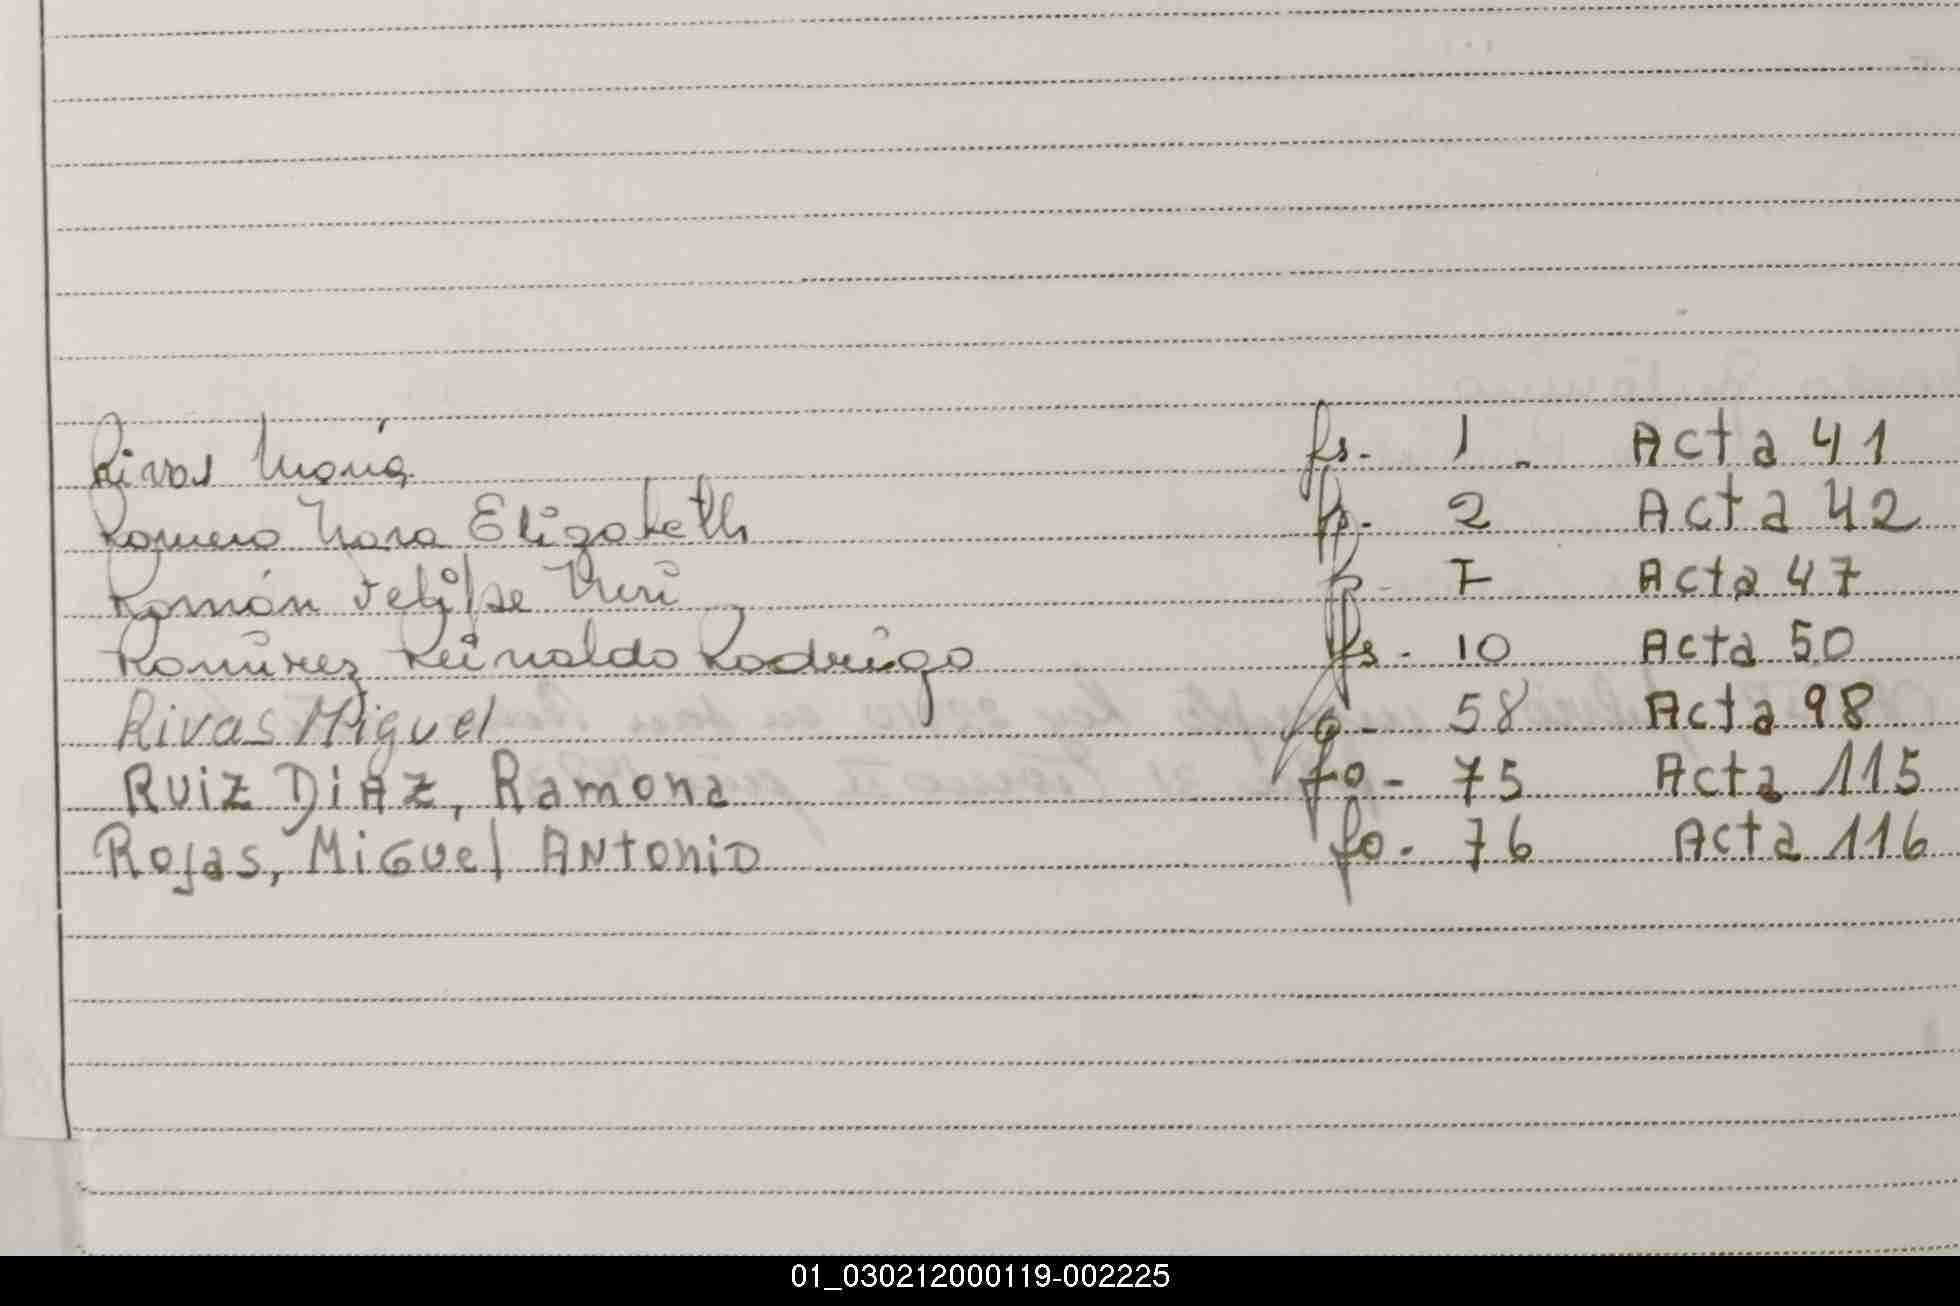 Rivas María fs. 1. Acta 41
Romero Nora Elizabeth fs. 2 Acta 42
Román Felipe Neri fs. 7 Acta 47
Ramírez Reinaldo Rodrigo fs. 10 Acta 50
Rivas Miguel fo. 58 Acta 98
Ruiz Diaz, Ramona fo. 75 Acta 115
Rojas, Miguel Antonio fo. 76 Acta 116
01_030212000119-002225